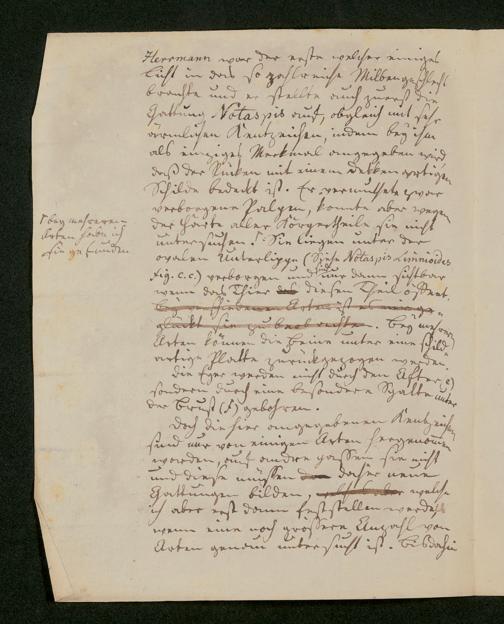 Herrmann war der erste welcher einiges
Licht in das so zahlreiche Milbengeschlecht
brachte und er stellte auch zuerst die
Gattung Notaspis auf, obgleich mit sehr
ärmlichen Kentzeichen, indem bey ihm
als einziges Merkmal angegeben wird
daß der Rücken mit einem deckenartigen
Schilde bedeckt ist. Er vermuthete zwar
verborgene Palpen, konnte aber wegen
der Härte aller Körpertheile sie nicht
untersuchen. Sie liegen unter der
ovalen Unterlippe (Siehe Notaspis Limnoides
fig. c.c.) verborgen und nur dann sichtbar
wenn das Thier diesen Theil öffnet.
bey mehreren
Arten habe ich
sie gefunden
glückt sie zu beobachten. Bey mehrern
Arten können die Beine unter eine schild
artige Platte zurückgezogen werden.
die Eyer werden nicht durch den After
sondern durch eine besondere Spalte unter
der Brust (f) gebohren.
Doch die hier angegebenen Kentzeichen
sind nur von einigen Arten hergenommen
worden, auf andre passen sie nicht
und diese müssen daher neue
Gattungen bilden, welche
ich aber erst dann feststellen werde
wenn eine noch grössere Anzahl von
Arten genau untersucht ist. Bis dahin